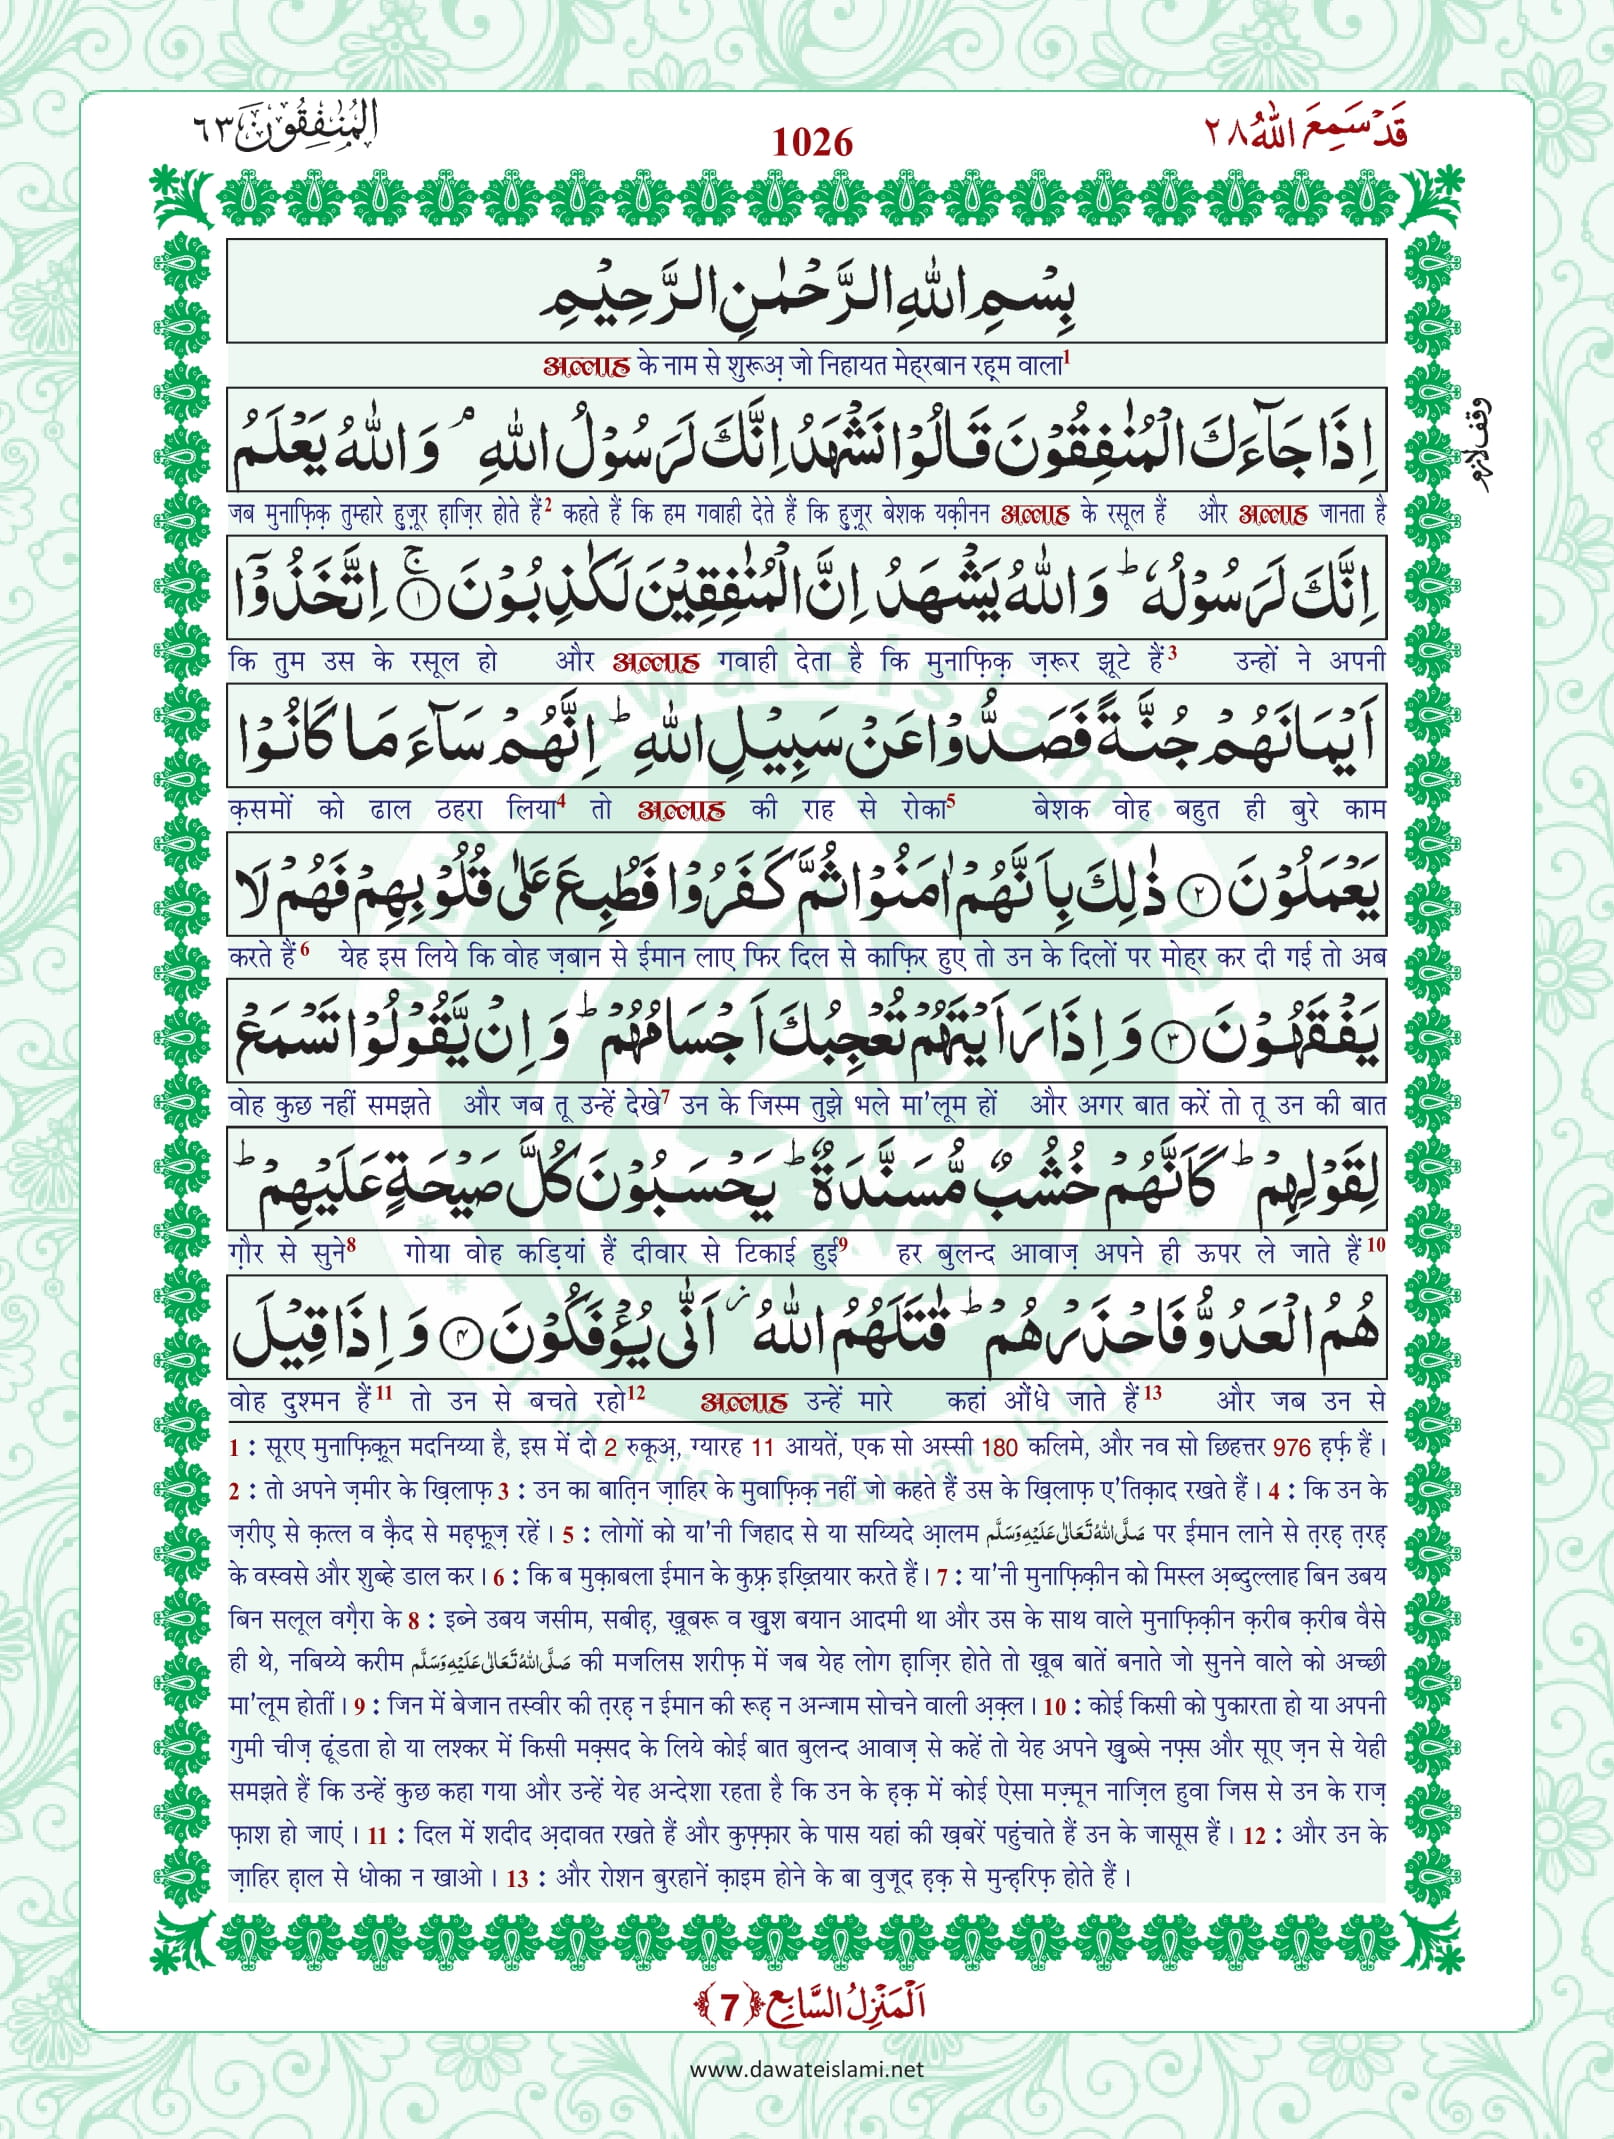 المُنٰفِقُوْن ٦٣
1026
قَدْ سَمِعَ اللّٰهُ ٢٨
بِسْمِ اللّٰهِ الرَّحْمٰنِ الرَّحِيْمِ
अल्लाह के नाम से शुरूअ़ जो निहायत मेह्‌रबान रह़्‌म वाला1
اِذَا جَآءَكَ الْمُنٰفِقُوْنَ قَالُوْا نَشْهَدُ اِنَّكَ لَرَسُوْلُ اللّٰهِ ۘ وَ اللّٰهُ يَعْلَمُ
وقف لازم
जब मुनाफ़िक़ तुम्हारे हुज़ूर ह़ाज़िर होते हैं2 कहते हैं कि हम गवाही देते हैं कि हुज़ूर बेशक यक़ीनन अल्लाह के रसूल हैं और अल्लाह जानता है
اِنَّكَ لَرَسُوْلُهٗ ؕ وَ اللّٰهُ يَشْهَدُ اِنَّ الْمُنٰفِقِيْنَ لَكٰذِبُوْنَ ۚ﴿۱﴾ اِتَّخَذُوْۤا
कि तुम उस के रसूल हो और अल्लाह गवाही देता है कि मुनाफ़िक़ ज़रूर झूटे हैं3 उन्हों ने अपनी
اَيْمَانَهُمْ جُنَّةً فَصَدُّوْا عَنْ سَبِيْلِ اللّٰهِ ؕ اِنَّهُمْ سَآءَ مَا كَانُوْا
क़समों को ढाल ठहरा लिया4 तो अल्लाह की राह से रोका5 बेशक वोह बहुत ही बुरे काम
يَعْمَلُوْنَ ﴿۲﴾ ذٰلِكَ بِاَنَّهُمْ اٰمَنُوْا ثُمَّ كَفَرُوْا فَطُبِعَ عَلٰى قُلُوْبِهِمْ فَهُمْ لَا
करते हैं6 येह इस लिये कि वोह ज़बान से ईमान लाए फिर दिल से काफ़िर हुए तो उन के दिलों पर मोह्‌र कर दी गई तो अब
يَفْقَهُوْنَ ﴿۳﴾ وَ اِذَا رَاَيْتَهُمْ تُعْجِبُكَ اَجْسَامُهُمْ ؕ وَ اِنْ يَّقُوْلُوْا تَسْمَعْ
वोह कुछ नहीं समझते और जब तू उन्हें देखे7 उन के जिस्म तुझे भले मा'लूम हों और अगर बात करें तो तू उन की बात
لِقَوْلِهِمْ ؕ كَاَنَّهُمْ خُشُبٌ مُّسَنَّدَةٌ ؕ يَحْسَبُوْنَ كُلَّ صَيْحَةٍ عَلَيْهِمْ ؕ
ग़ौर से सुने8 गोया वोह कड़ियां हैं दीवार से टिकाई हुई9 हर बुलन्द आवाज़ अपने ही ऊपर ले जाते हैं10
هُمُ الْعَدُوُّ فَاحْذَرْهُمْ ؕ قٰتَلَهُمُ اللّٰهُ ۫ اَنّٰى يُؤْفَكُوْنَ ﴿۴﴾ وَ اِذَا قِيْلَ
वोह दुश्मन हैं11 तो उन से बचते रहो12 अल्लाह उन्हें मारे कहां औंधे जाते हैं13 और जब उन से
1 : सूरए मुनाफ़िक़ून मदनिय्या है, इस में दो 2 रुकूअ़, ग्यारह 11 आयतें, एक सो अस्सी 180 कलिमे, और नव सो छिहत्तर 976 ह़र्फ़ हैं।
2 : तो अपने ज़मीर के ख़िलाफ़ 3 : उन का बात़िन ज़ाहिर के मुवाफ़िक़ नहीं जो कहते हैं उस के ख़िलाफ़ ए'तिक़ाद रखते हैं। 4 : कि उन के
ज़रीए से क़त्ल व क़ैद से मह़फ़ूज़ रहें। 5 : लोगों को या'नी जिहाद से या सय्यिदे आ़लम صَلَّى اللّٰهُ تَعَالٰى عَلَيْهِ وَسَلَّم पर ईमान लाने से त़रह़ त़रह़
के वस्वसे और शुब्हे डाल कर। 6 : कि ब मुक़ाबला ईमान के कुफ़्र इख़्तियार करते हैं। 7 : या'नी मुनाफ़िक़ीन को मिस्ल अ़ब्दुल्लाह बिन उबय
बिन सलूल वग़ैरा के 8 : इब्ने उबय जसीम, सबीह़, ख़ूबरू व ख़ुश बयान आदमी था और उस के साथ वाले मुनाफ़िक़ीन क़रीब क़रीब वैसे
ही थे, नबिय्ये करीम صَلَّى اللّٰهُ تَعَالٰى عَلَيْهِ وَسَلَّم की मजलिस शरीफ़ में जब येह लोग ह़ाज़िर होते तो ख़ूब बातें बनाते जो सुनने वाले को अच्छी
मा'लूम होतीं। 9 : जिन में बेजान तस्वीर की त़रह़ न ईमान की रूह़ न अन्जाम सोचने वाली अ़क़्ल। 10 : कोई किसी को पुकारता हो या अपनी
गुमी चीज़ ढूंडता हो या लश्कर में किसी मक़्सद के लिये कोई बात बुलन्द आवाज़ से कहें तो येह अपने ख़ुब्से नफ़्स और सूए ज़न से येही
समझते हैं कि उन्हें कुछ कहा गया और उन्हें येह अन्देशा रहता है कि उन के ह़क़ में कोई ऐसा मज़्मून नाज़िल हुवा जिस से उन के राज़
फ़ाश हो जाएं। 11 : दिल में शदीद अ़दावत रखते हैं और कुफ़्फ़ार के पास यहां की ख़बरें पहुंचाते हैं उन के जासूस हैं। 12 : और उन के
ज़ाहिर ह़ाल से धोका न खाओ। 13 : और रोशन बुरहानें क़ाइम होने के बा वुजूद ह़क़ से मुन्ह़रिफ़ होते हैं।
اَلْمَنْزِلُ السَّابِع ﴿7﴾
www.dawateislami.net